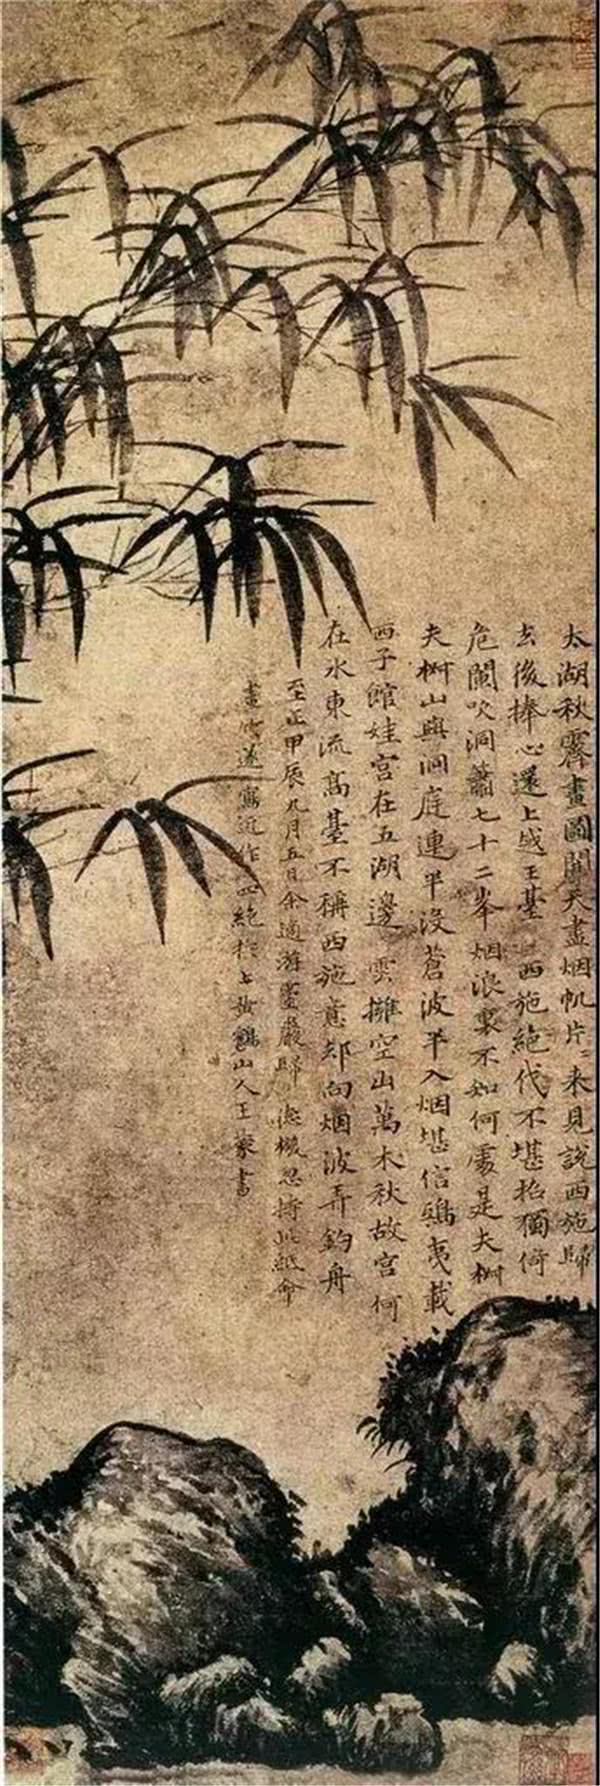 太湖秋霽畫圖開天盡烟帆片〻來見說西施歸
去後捧心還上越王臺西施絕代不堪招獨倚
危闌吹洞簫七十二峯烟浪裏不知何處是夫椒
夫椒山與洞庭連半沒蒼波半入烟堪信鴟夷載
西子館娃宮在五湖邊雲擁空山萬木秋故宮何
在水東流高臺不稱西施意却向烟波弄釣舟
至正甲辰九月五日余適游靈巖歸德機忽持此紙命
畫竹遂寫近作四絕於上黃鶴山人王蒙書